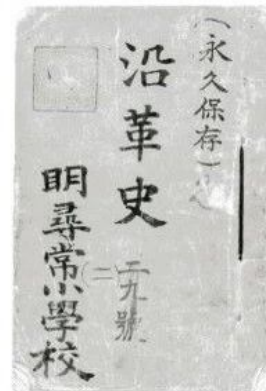 （永久保存）
沿革史
二九號
（二）
明尋常小學校